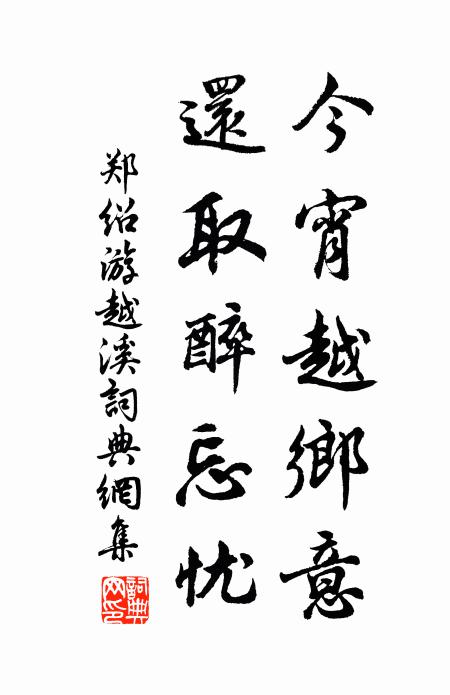 今宵越鄉意
還取醉忘忧
郑绍游越溪詞典網集
詞典
网印